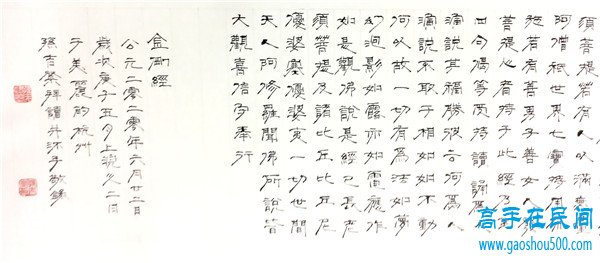 須菩提若有人以滿無
阿僧祇世界七寶持用布
施若有善男子善女人發
菩提心者持于此經乃至
四句偈等受持讀誦為人
演說其福勝彼云何為人
演說不取于相如如不動
何以故一切有為法如夢
幻泡影如露亦如電應作
如是觀佛說是經已長老
須菩提及諸比丘比丘尼
優婆塞優婆夷一切世間
天人阿修羅聞佛所說皆
大歡喜信受奉行
金剛經
公元二零二零年六月廿二日
歲次庚子五月上浣二日
于美麗的杭州
孫吉榮拜讀并沐手敬錄
高手在民间
www.gaoshou500.com